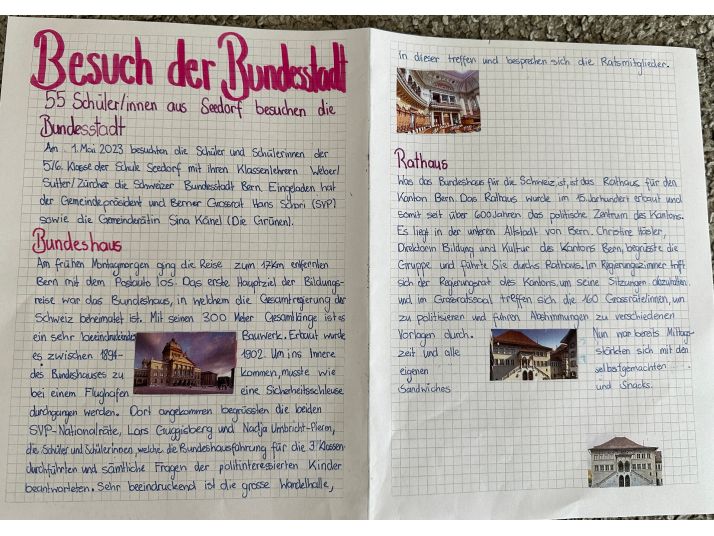 Besuch der Bundesstadt
55 Schüler/innen aus Seedorf besuchen die
Bundesstadt
Am 1. Mai 2023 besuchten die Schüler und Schülerinnen der
5/6. Klasse der Schule Seedorf mit ihren Klassenlehrern Weber/
Sutter/Zürcher die Schweizer Bundesstadt Bern. Eingeladen hat
der Gemeindepräsident und Berner Grossrat Hans Schori (SVP)
sowie die Gemeinderätin Sina Känel (Die Grünen).
Bundeshaus
Am frühen Montagmorgen ging die Reise zum 17km entfernten
Bern mit dem Postauto los. Das erste Hauptziel der Bildungs-
reise war das Bundeshaus, in welchem die Gesamtregierung der
Schweiz beheimatet ist. Mit seinen 300 Meter Gesamtlänge ist es
ein sehr beeindruckendes Bauwerk. Erbaut wurde
es zwischen 1894- 1902. Um ins Innere
des Bundeshauses zu kommen, musste wie
bei einem Flughafen eine Sicherheitsschleuse
durchgangen werden. Dort angekommen begrüssten die beiden
SVP-Nationalräte, Lars Guggisberg und Nadja Umbricht-Pieren,
die Schüler und Schülerinnen, welche die Bundeshausführung für die 3 Klassen
durchführten und sämtliche Fragen der politinteressierten Kinder
beantworteten. Sehr beeindruckend ist die grosse Wandelhalle,
In dieser treffen und besprechen sich die Ratsmitglieder.
Rathaus
Was das Bundeshaus für die Schweiz ist, ist das Rathaus für den
Kanton Bern. Das Rathaus wurde im 15. Jahrhundert erbaut und
somit seit über 600 Jahren das politische Zentrum des Kantons.
Es liegt in der unteren Altstadt von Bern. Christine Häsler,
Direktorin Bildung und Kultur des Kantons Bern, begrüsste die
Gruppe und führte Sie durchs Rathaus. Im Regierungszimmer trifft
sich der Regierungsrat des Kantons, um seine Sitzungen abzuhalten
und im Grossratssaal treffen sich die 160 Grossräte/innen, um
zu politisieren und führen Abstimmungen zu verschiedenen
Vorlagen durch. Nun war bereits Mittags-
zeit und alle stärkten sich mit den
eigenen selbstgemachten
Sandwiches und Snacks.